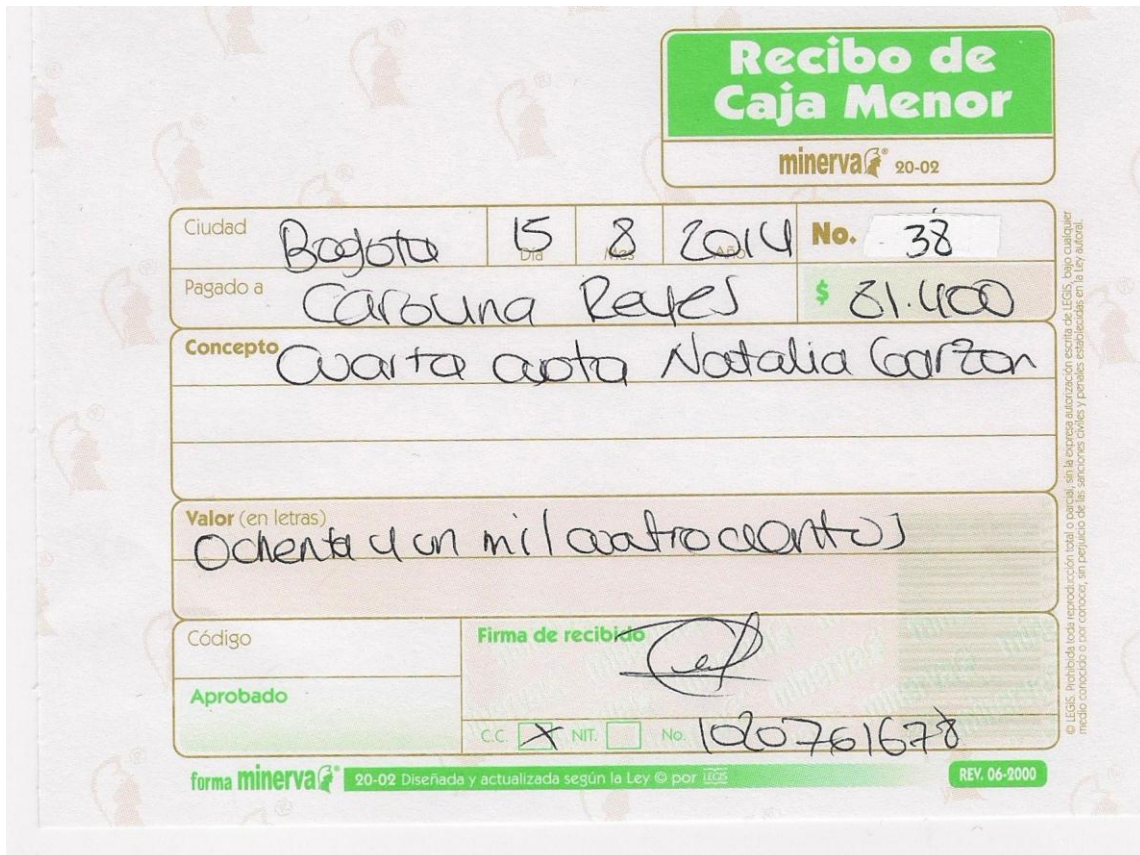 Recibo de
Caja Menor
minerva® 20-02
Ciudad Bogota 15 Día 8 Mes 2014 Año No. 38
Pagado a Carolina Reyes $ 81.400
Concepto Cuarta cuota Natalia Garzon
Valor (en letras)
Ochenta y un mil cuatrocientos
Código
Firma de recibido
Aprobado
C.C. X NIT. No. 1020761678
forma minerva® 20-02 Diseñada y actualizada según la Ley © por LEGIS REV. 06-2000
© LEGIS. Prohibida toda reproducción total o parcial, sin la expresa autorización escrita de LEGIS, bajo cualquier
medio conocido o por conocer, sin perjuicio de las sanciones civiles y penales establecidas en la Ley autoral.